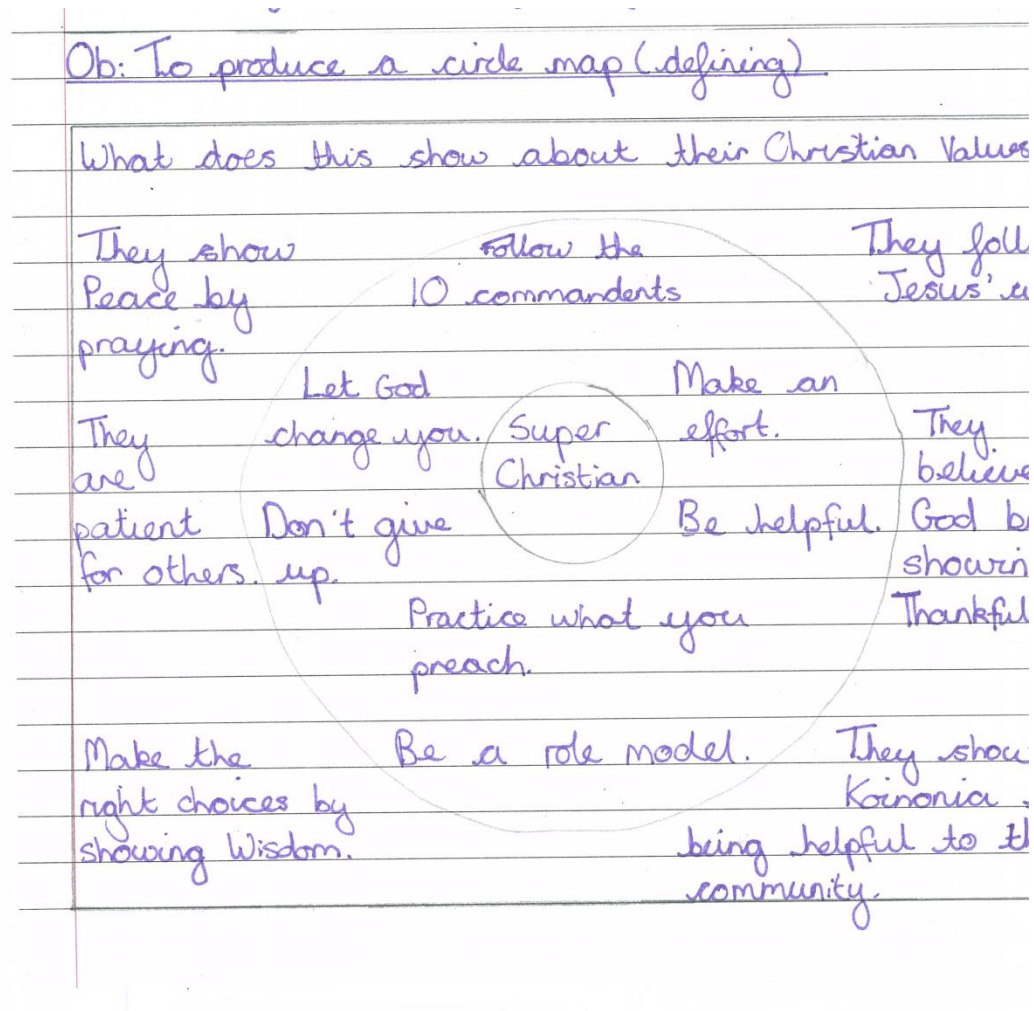 Ob: To produce a circle map (defining)
What does this show about their Christian Values
They show
Peace by
praying.
Follow the
10 commandents
They foll
Jesus'
Let God
change you.
Make an
effort.
Super
Christian
They
are
patient
for others.
Don't give
up.
Be helpful.
They
believe
God b
showin
Thankful
Practice what you
preach.
Make the
right choices by
showing Wisdom.
Be a role model.
They show
Koinonia
being helpful to th
community.